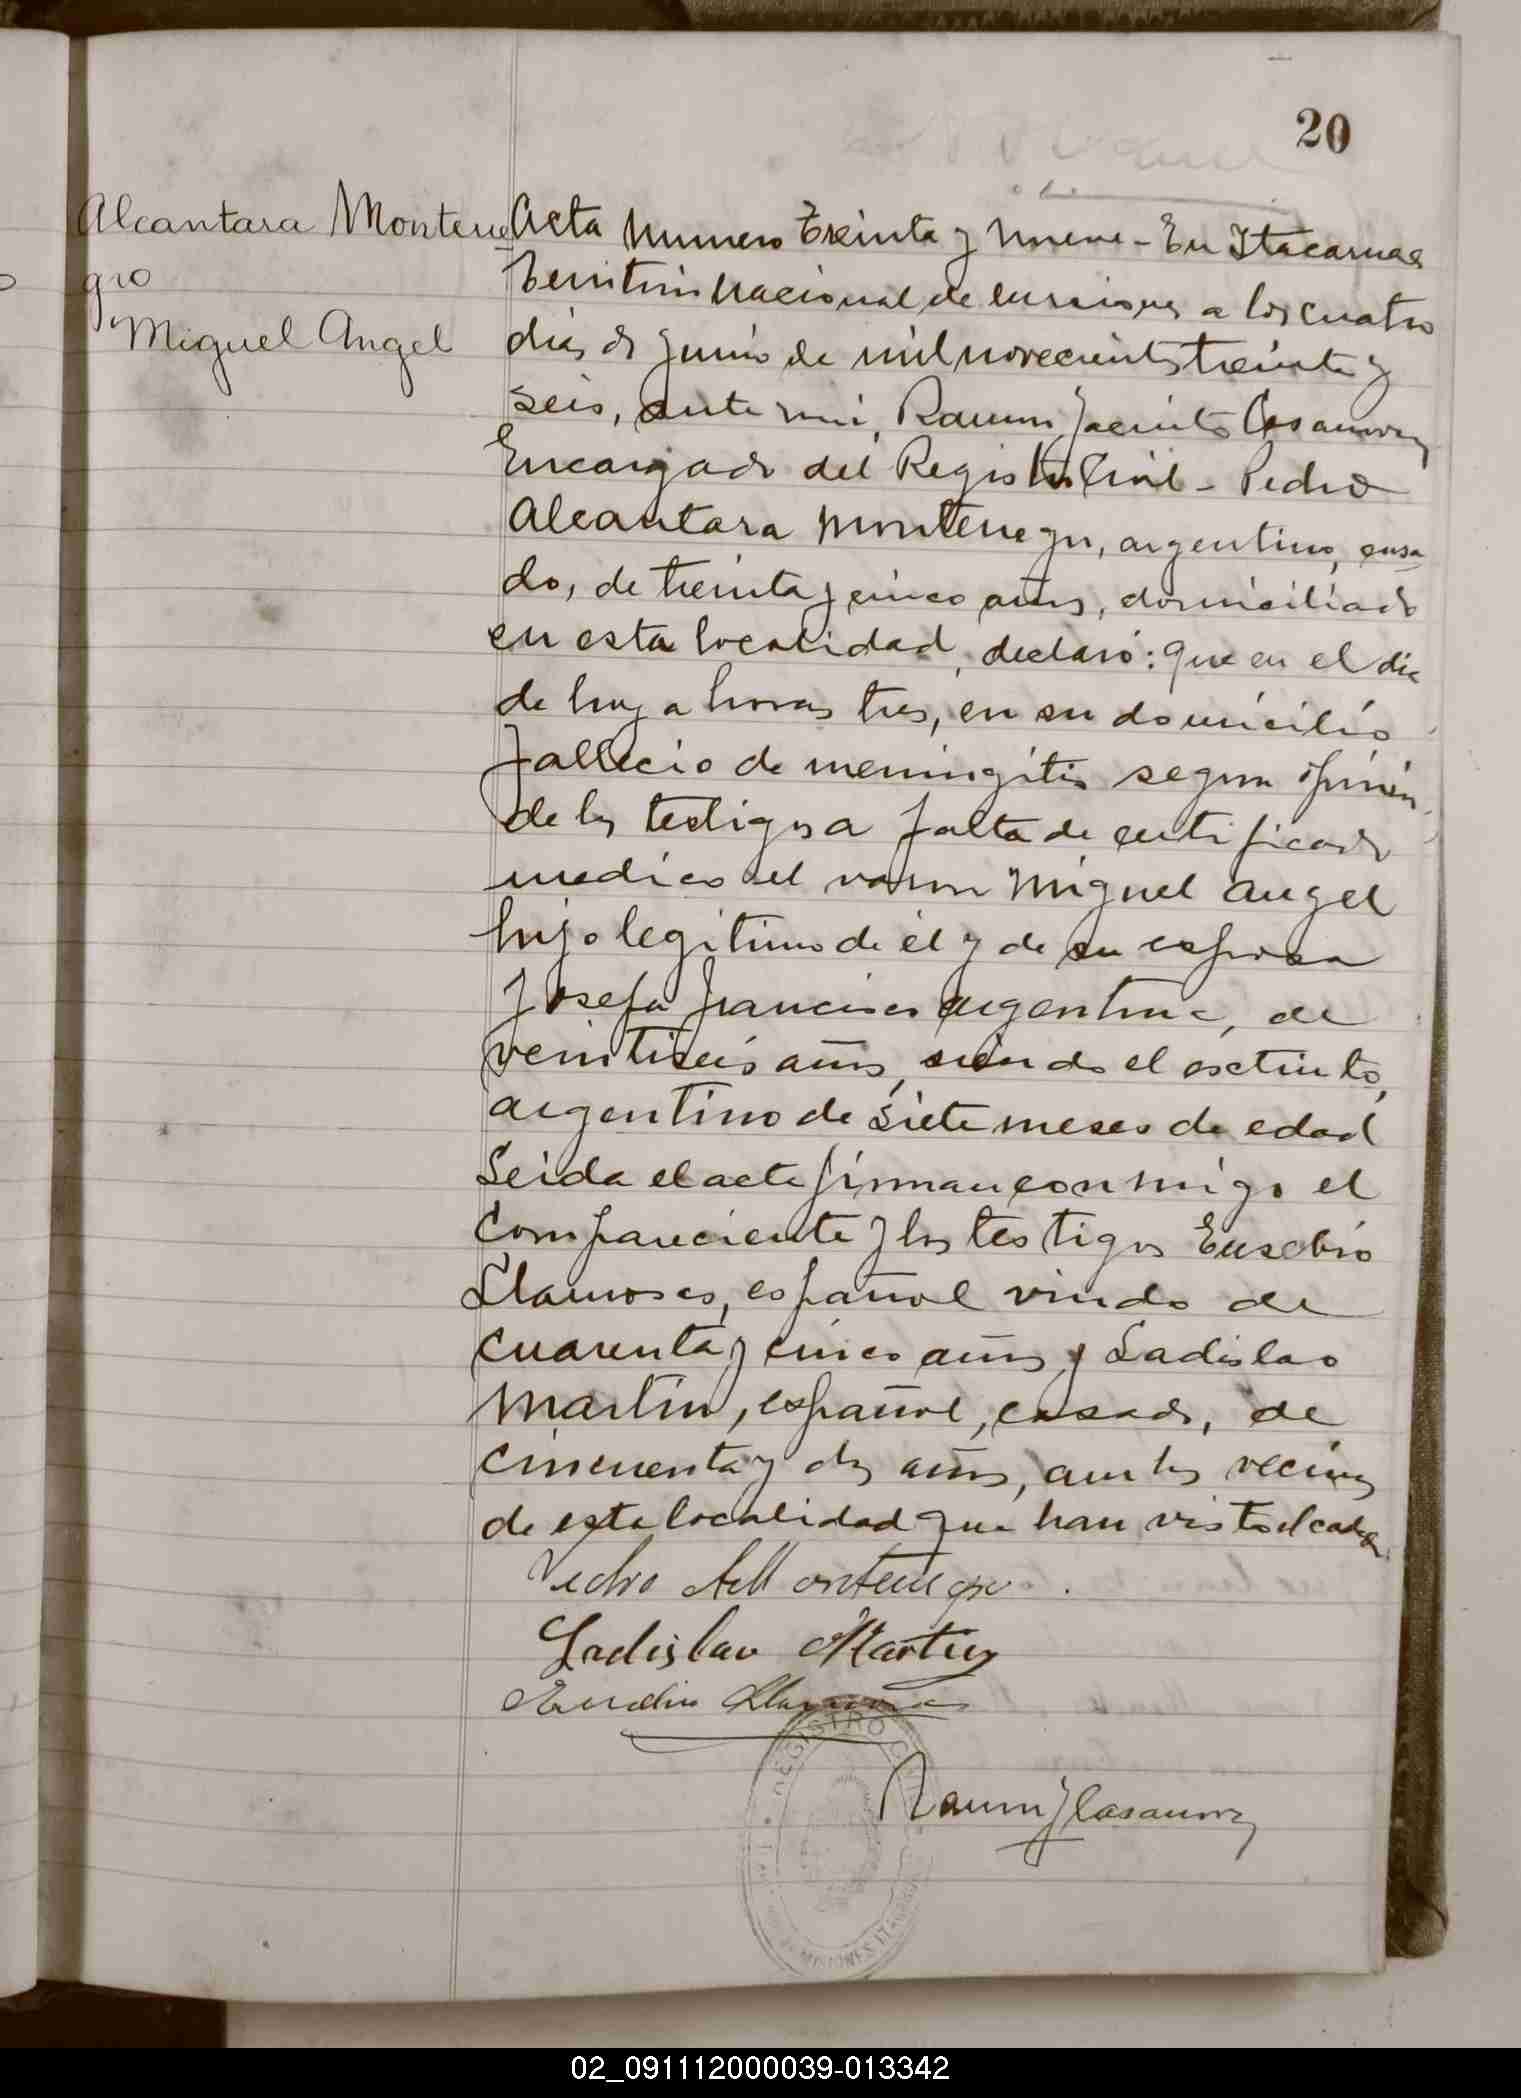 20
Alcantara Montene
gro
Miguel Angel
Acta Numero Treinta y Nueve - En Itacaruare
Territorio Nacional de Misiones a los cuatro
dias de Junio de mil novecientos treinta y
seis, ante mi, Ramon Jacinto Casanova
Encargado del Registro Civil - Pedro
Alcantara Montenegro, argentino, casa
do, de treinta y cinco años, domiciliado
en esta localidad, declaró: Que en el dia
de hoy a horas tres, en su domicilio
fallecio de meningitis segun opinión
de los testigos a falta de certificado
medico el varon Miguel Angel
hijo legitimo de él y de su esposa
Josefa Francisco argentina, de
veintiseis años, siendo el extinto,
argentino de siete meses de edad
Leida el acta firman conmigo el
compareciente y los testigos Eusebio
Llamosas, español viudo de
cuarenta y cinco años y Ladislao
Martin, español, casado, de
cincuenta y dos años, ambos vecinos
de esta localidad que han visto el cadaver
Pedro A. Montenegro.
Ladislao Martin
Eusebio Llamosas
Ramon J Casanova
REGISTRO CIVIL
MISIONES ITACARUARE
02_091112000039-013342